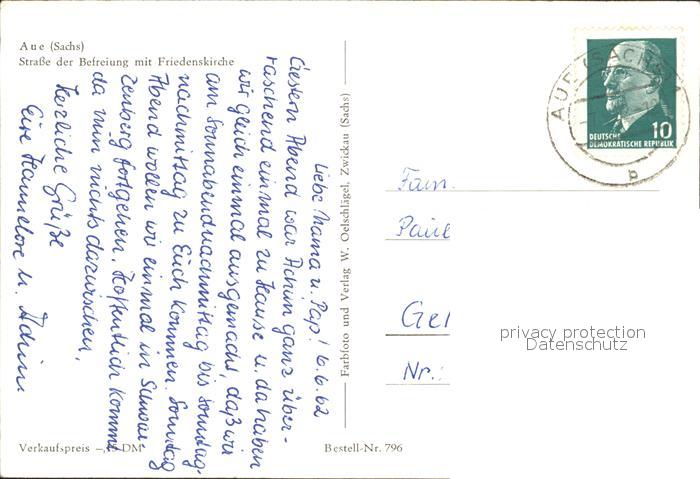 Aue (Sachs)
Straße der Befreiung mit Friedenskirche
Liebe Mama u. Pap! 6.6.62
Gestern Abend war Achim ganz über-
raschend einmal zu Hause u. da haben
wir gleich einmal ausgemacht, daß wir
am Sonnabendnachmittag bis Sonntag-
nachmittag zu Euch kommen. Sonntag
Abend wollen wir einmal in Schwar-
zenberg fortgehen. Hoffentlich kommt
da nun nichts dazwischen.
Herzliche Grüße
Eure Hannelore u. Achim.
Verkaufspreis –, DM
Bestell-Nr. 796
Farbfoto und Verlag W. Oelschlägel, Zwickau (Sachs)
AUE (SACHS)
b
DEUTSCHE
DEMOKRATISCHE REPUBLIK
10
Fam.
Paul
Ger
Nr.:
privacy protection
Datenschutz